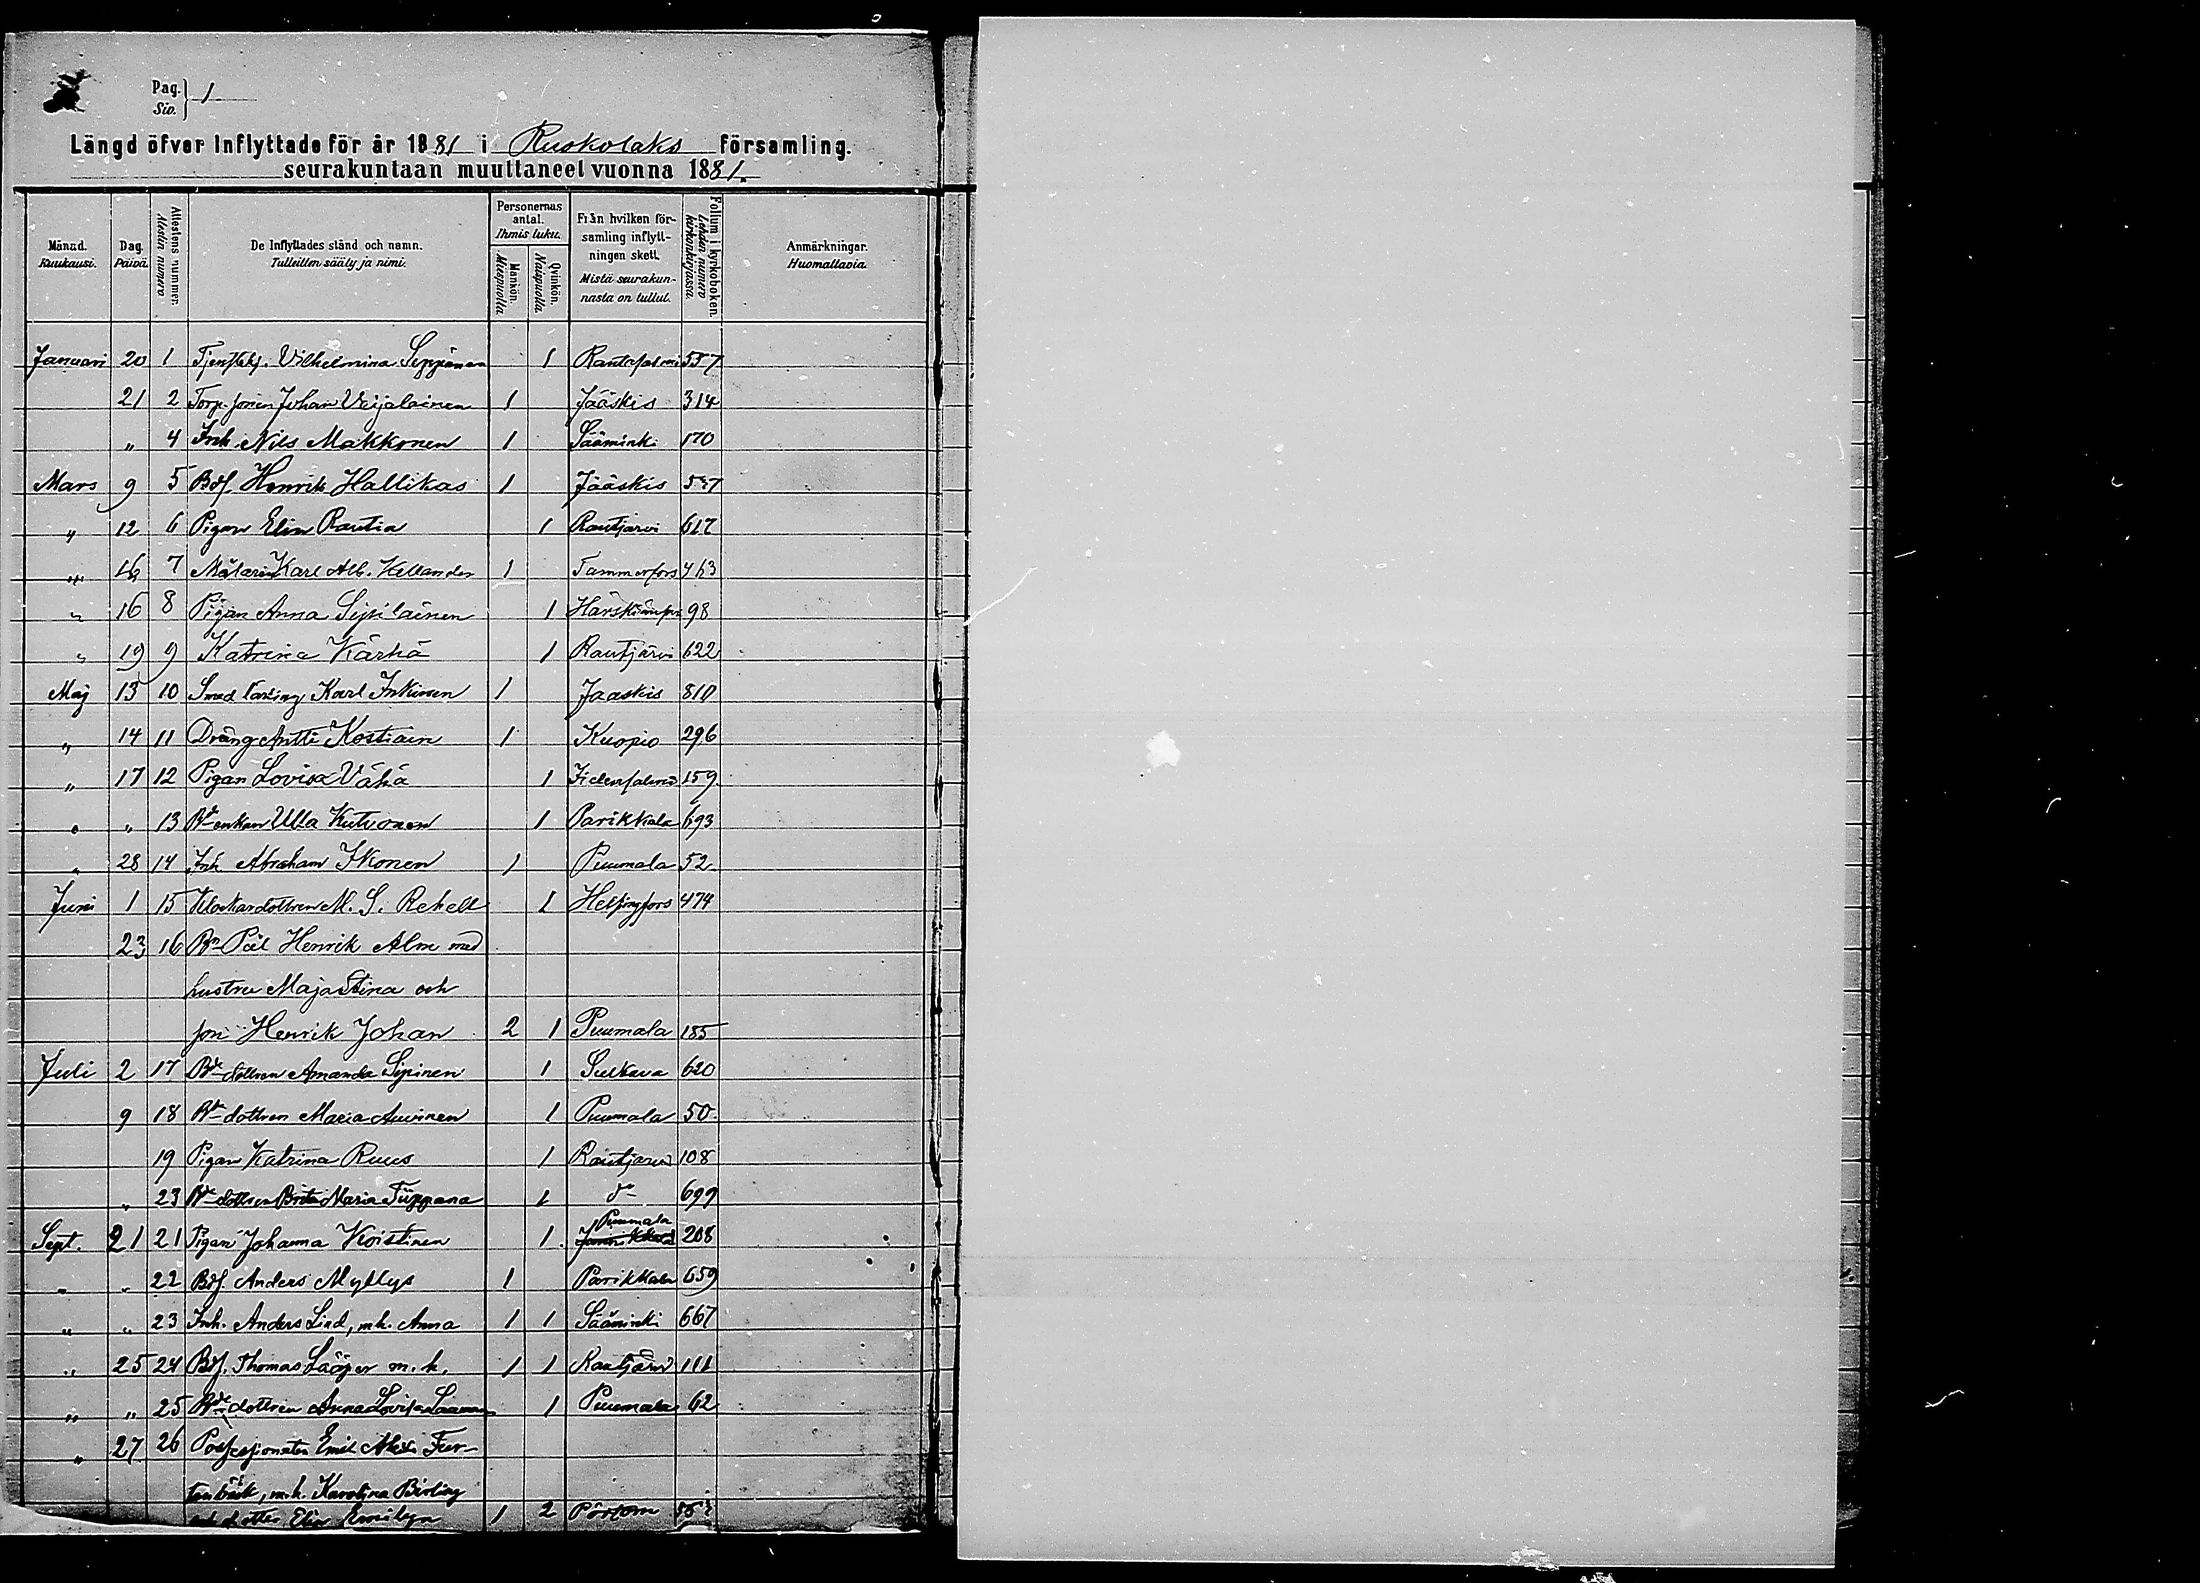 Pag. 1
Siv.
Längd öfver Inflyttade för år 1881 i Ruokolaks församling.
seurakuntaan muuttaneet vuonna 1881.
Månad. Kuukausi.
Dag. Päivä.
Attestens nummer. Alestin numero
De Inflyttades stånd och namn.
Tulleitten sääty ja nimi.
Personernas antal.
Ihmis luku.
Mankön. Miespuolia.
Qvinkön. Naispuolia.
Från hvilken församling inflyttningen skett.
Mistä seurakunnasta on tullut.
Folium i kyrkoboken. Lehden numero kirkonkirjassa.
Anmärkningar.
Huomattavia.
Januari 20 1 Vilhelmina Seppänen 1 Rantasalmi 557
21 2 Johan Veijalainen 1 Jääskis 314
" 4 Inh. Nils Makkonen 1 Sääminki 170
Mars 9 5 Bdf. Henrik Hallikas 1 Jääskis 597
" 12 6 Pigan Elin Rautia 1 Rautjärvi 617
" 16 7 Målaren Karl Alb. Hellander 1 Tammerfors 463
" 16 8 Pigan Anna Sipilainen 1 98
" 19 9 Katrina Kärhä 1 Rautjärvi 622
Maj 13 10 Smed Karl Inkinen 1 Jaaskis 810
" 14 11 Dräng Antti Kostiain 1 Kuopio 296
" 17 12 Pigan Lovisa Vähä 1 Idensalmi 159
" " 13 Bdeenkan Ulla Kutvonen 1 Parikkala 693
" 28 14 Inh. Abraham Ikonen 1 Puumala 52
Juni 1 15 Klockardottren M. S. Rehell 1 Helsingfors 474
23 16 Bn Pål Henrik Alm med
hustru Maja Stina och
son Henrik Johan 2 1 Puumala 185
Juli 2 17 Bdedottren Amanda Sipinen 1 Sulkava 620
9 18 Bdedottren Maria Auvinen 1 Puumala 50
19 Pigan Katrina Ruus 1 Rautjärvi 108
" 23 Bdedottren Brita Maria Tiippana 1 do 699
Sept. 21 21 Pigan Johanna Koistinen 1 Puumala 208
" " 22 Bdf. Anders Myllys 1 Parikkala 659
" " 23 Inh. Anders Lind, m.h. Anna 1 1 Sääminki 667
" 25 24 Bdf. Thomas Lääper m.h. 1 1 Rautjärvi 111
" " 25 Bdedottren Anna Lovisa 1 Puumala 62
" 27 26 Possessionaten Emil Fur-
tenbäck, m.h. Karolina
dotter Elin 1 2 Pörtom